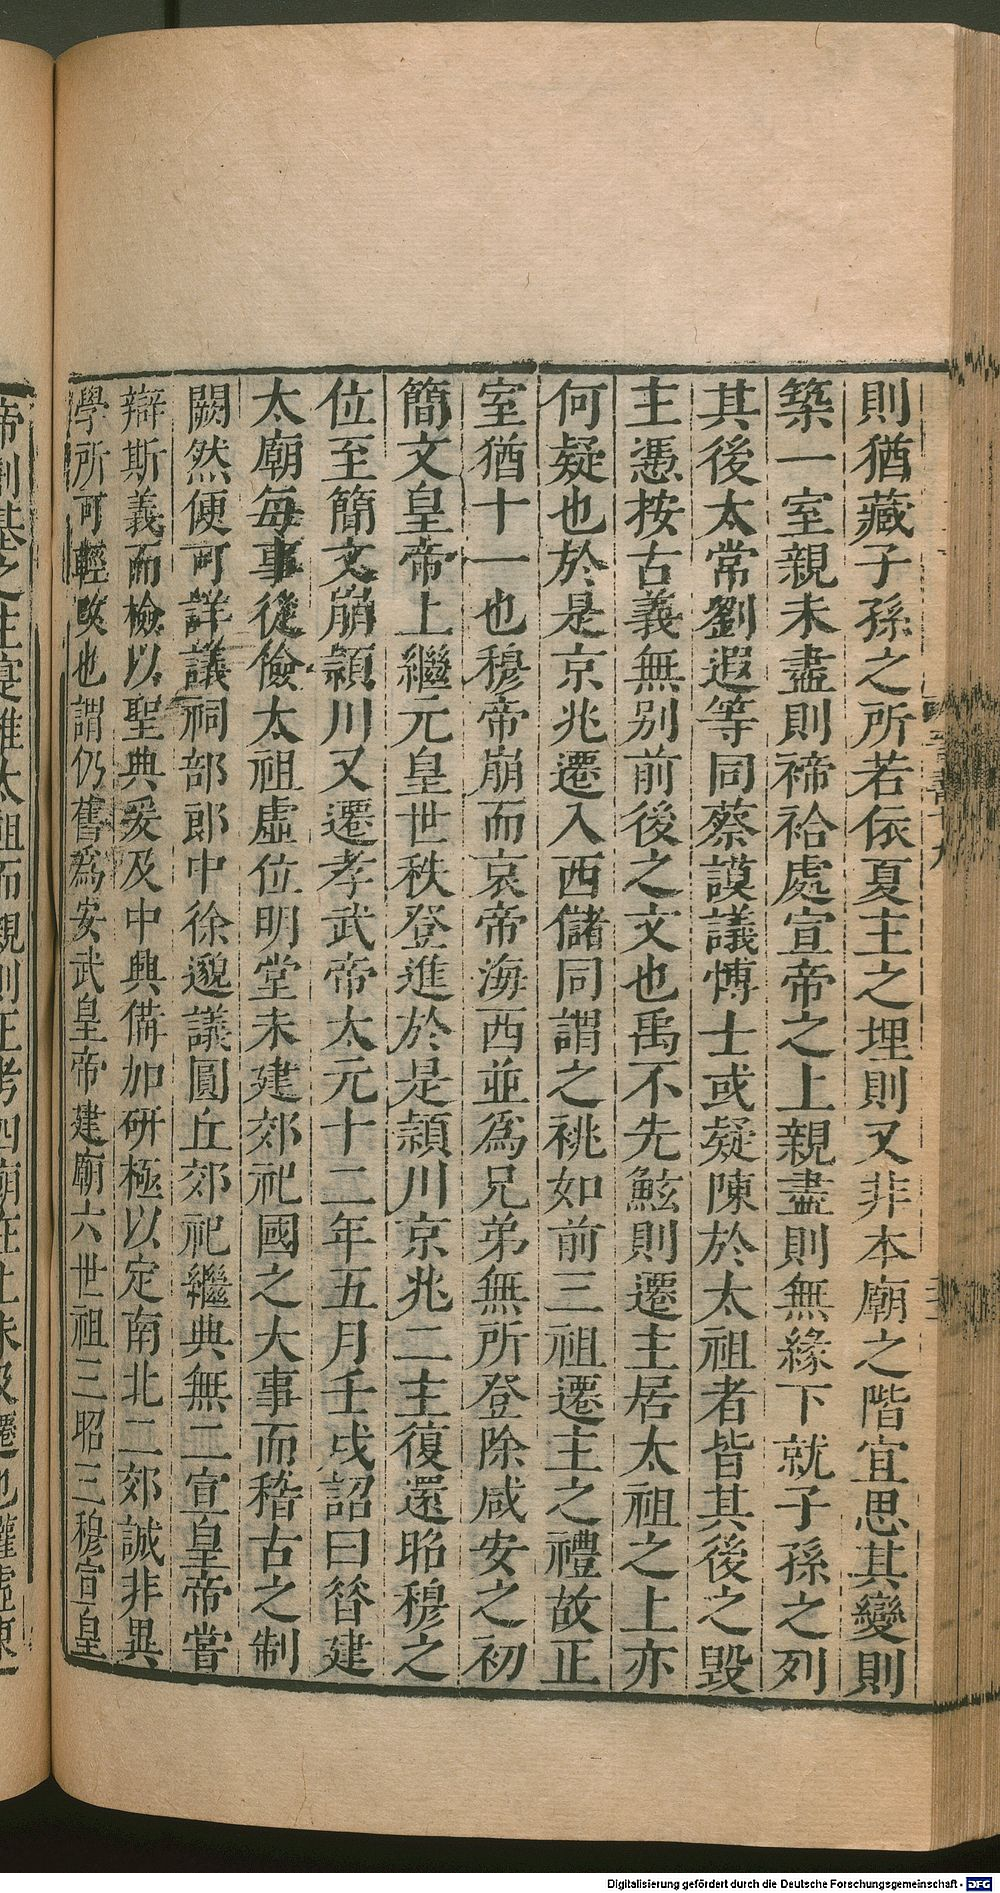 則猶藏子孫之所若依夏主之埋則又非本廟之階宜思其變則
築一室親未盡則禘祫處宣帝之上親盡則無緣下就子孫之列
其後太常劉遐等同蔡謨議博士或疑陳於太祖者皆其後之毀
主憑按古義無別前後之文也禹不先鮌則遷主居太祖之上亦
何疑也於是京兆遷入西儲同謂之祧如前三祖遷主之禮故正
室猶十一也穆帝崩而哀帝海西並爲兄弟無所登除咸安之初
簡文皇帝上繼元皇世秩登進於是潁川京兆二主復還昭穆之
位至簡文崩潁川又遷孝武帝太元十二年五月壬戌詔曰昝建
太廟每事從儉太祖虛位明堂未建郊祀國之大事而稽古之制
闕然便可詳議祠部郎中徐邈議圓丘郊祀繼典無二宣皇帝嘗
辯斯義而檢以聖典爰及中興備加研極以定南北二郊誠非異
學所可輕改也謂仍舊爲安武皇帝建廟六世祖三昭三穆宣皇
帝創基之主寔惟太祖而親則王考四廟在上未及遷也權虛東
Digitalisierung gefördert durch die Deutsche Forschungsgemeinschaft - DFG